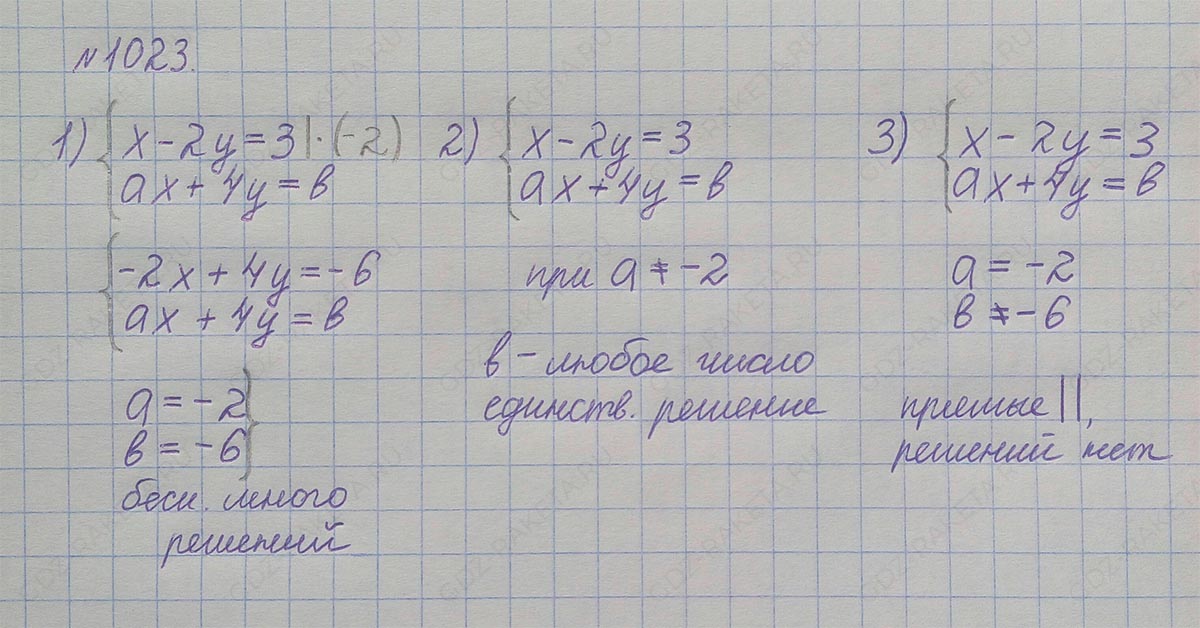 №1023.
1) { x - 2y = 3 | · (-2)
ax + 4y = в
{ -2x + 4y = -6
ax + 4y = в
a = -2 }
в = -6
беск. много
решений
2) { x - 2y = 3
ax + 4y = в
при a ≠ -2
в - любое число
единств. решение
3) { x - 2y = 3
ax + 4y = в
a = -2
в ≠ -6
прямые ||,
решений нет
GDZ-RAKETA.RU